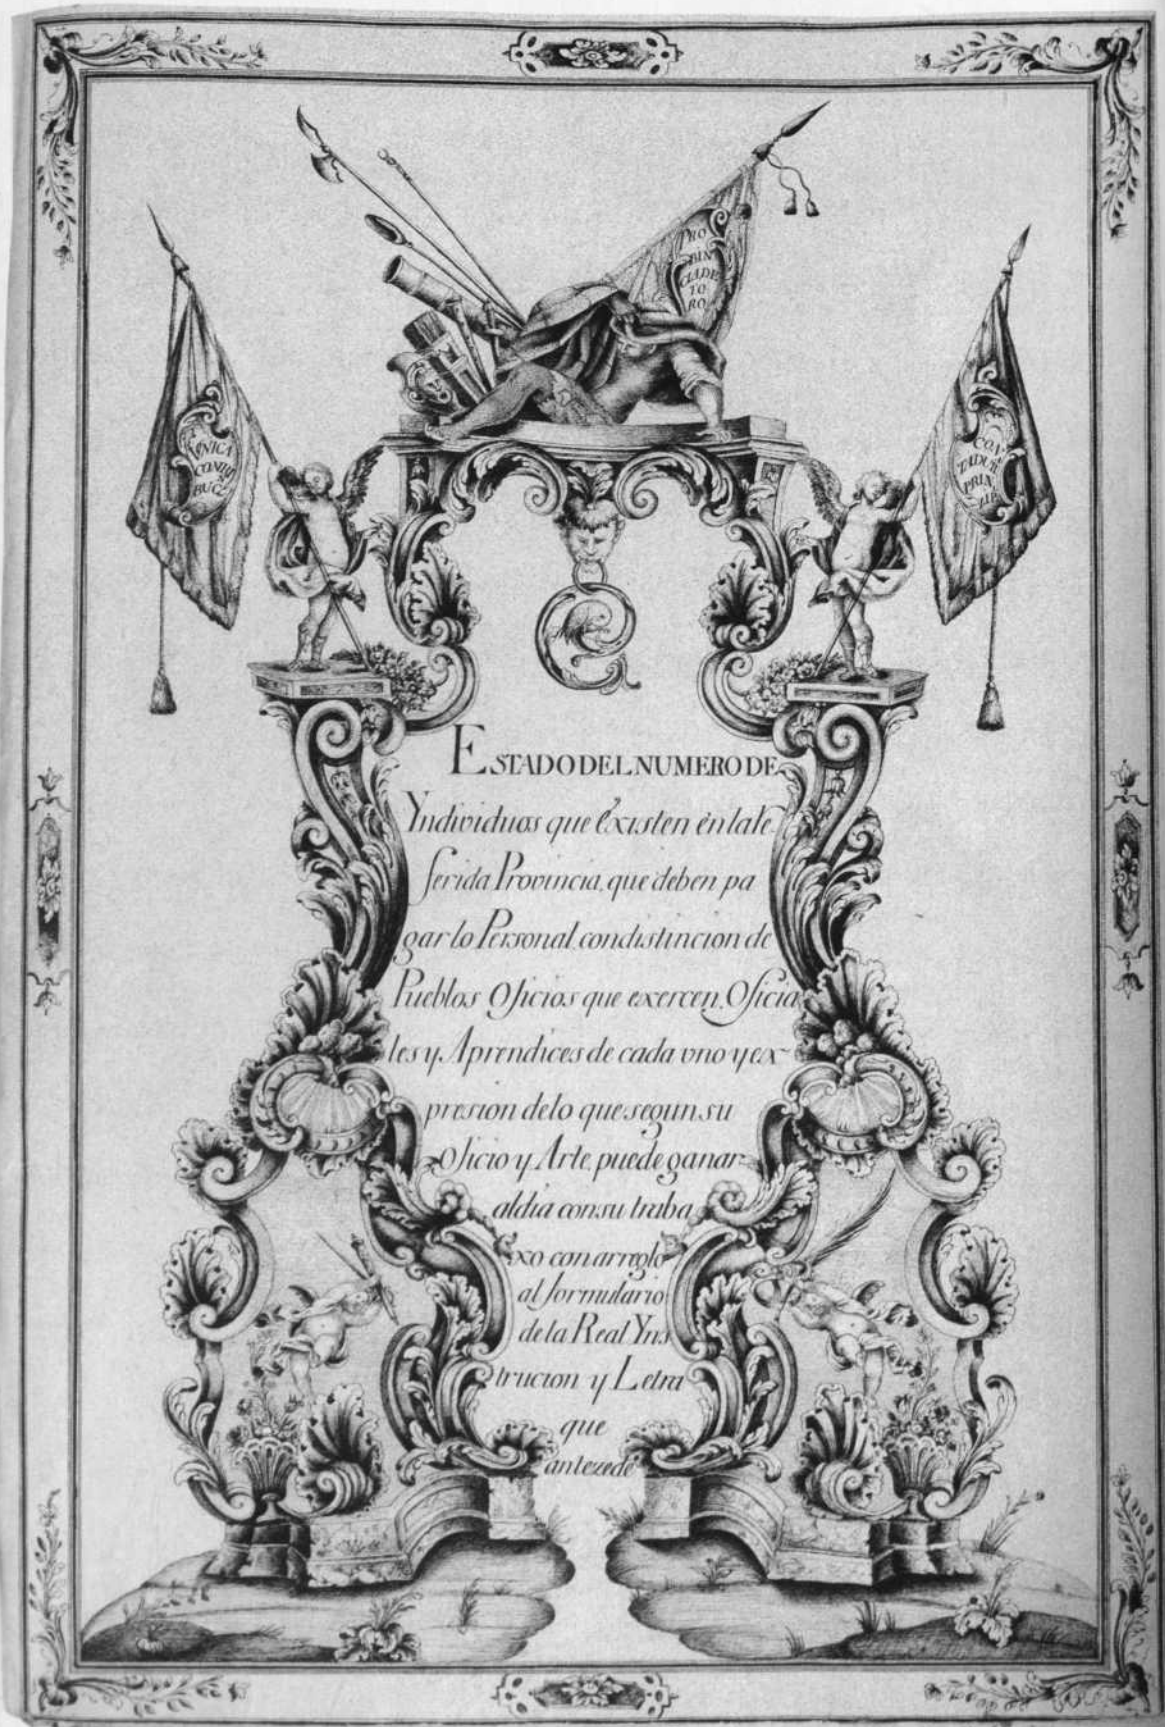 PRO
BIN
CIA DE
TO
RO
VNICA
CONTRI
BUCI
CON
TADUR
PRIN
ZIP
G
ESTADO DEL NUMERO DE
Yndividuos que existen èn la re
ferida Provincia, que deben pa
gar lo Personal, con distincion de
Pueblos Oficios que exercen, Oficia
les y Aprendices de cada vno y ex
presion de lo que segun su
oficio y Arte, puede ganar
al dia con su traba
xo con arreglo
al formulario
de la Real Yns
trucion y Letra
que
antezede